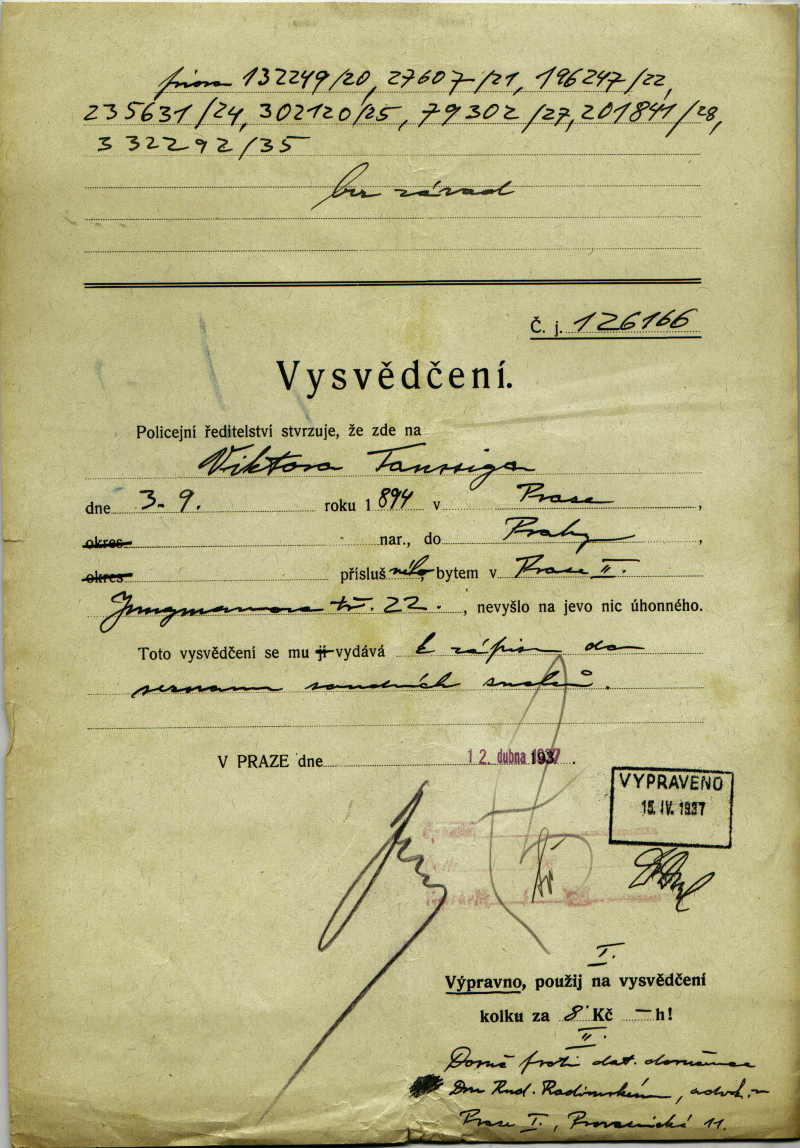 priora 132249/20, 27607/21, 196247/22,
235631/24, 302120/25, 79302/27, 201841/28,
332292/35
bez závad
Č. j. 126166
Vysvědčení.
Policejní ředitelství stvrzuje, že zde na
Viktora Taussiga
dne 3. 9. roku 1894 v Praze,
okres nar., do Prahy,
okres příslušného, bytem v Praze II.
Jungmannova tř. 22., nevyšlo na jevo nic úhonného.
Toto vysvědčení se mu ji vydává k zápisu do
seznamu soudních znalců.
V PRAZE dne 12. dubna 1937.
VYPRAVENO
15. IV. 1937
I.
Výpravno, použij na vysvědčení
kolku za 8 Kč — h!
II.
Doruč proti dat. doručence
Dru Rud. , advok.
Praze I., Provaznická 11.